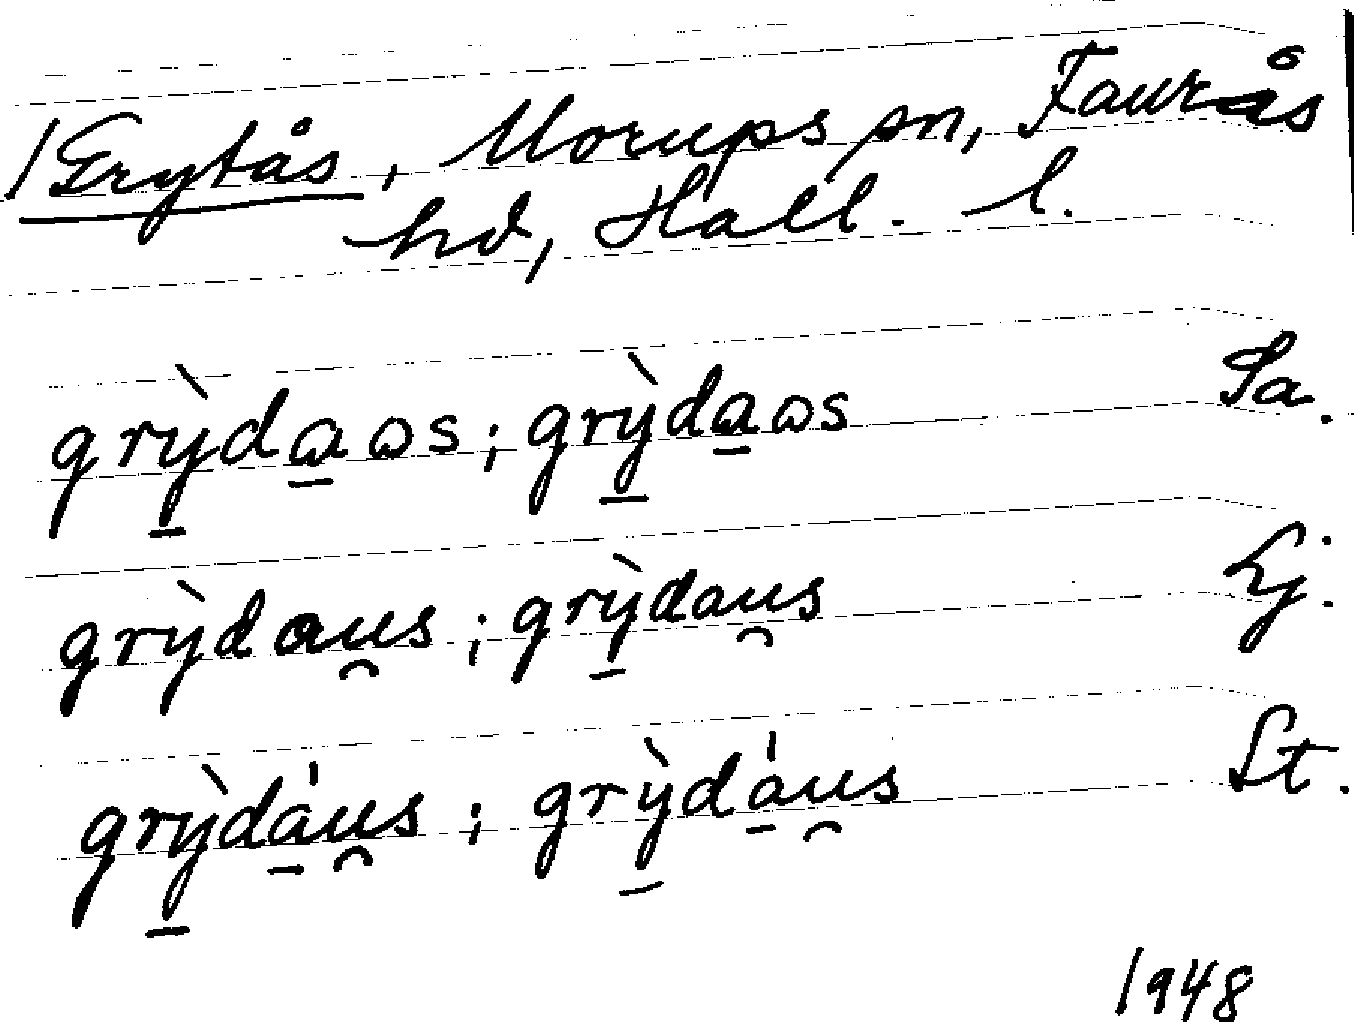 / Grytås, Morups sn, Faurås
hd, Hall. l.
grỳ̱da̱ ɷs; grỳ̱da̱ɷs Sa.
grỳdau̯s; grỳ̱dau̯s Lj.
grỳ̱dá̱u̯s; grỳ̱dá̱u̯s St.
1948